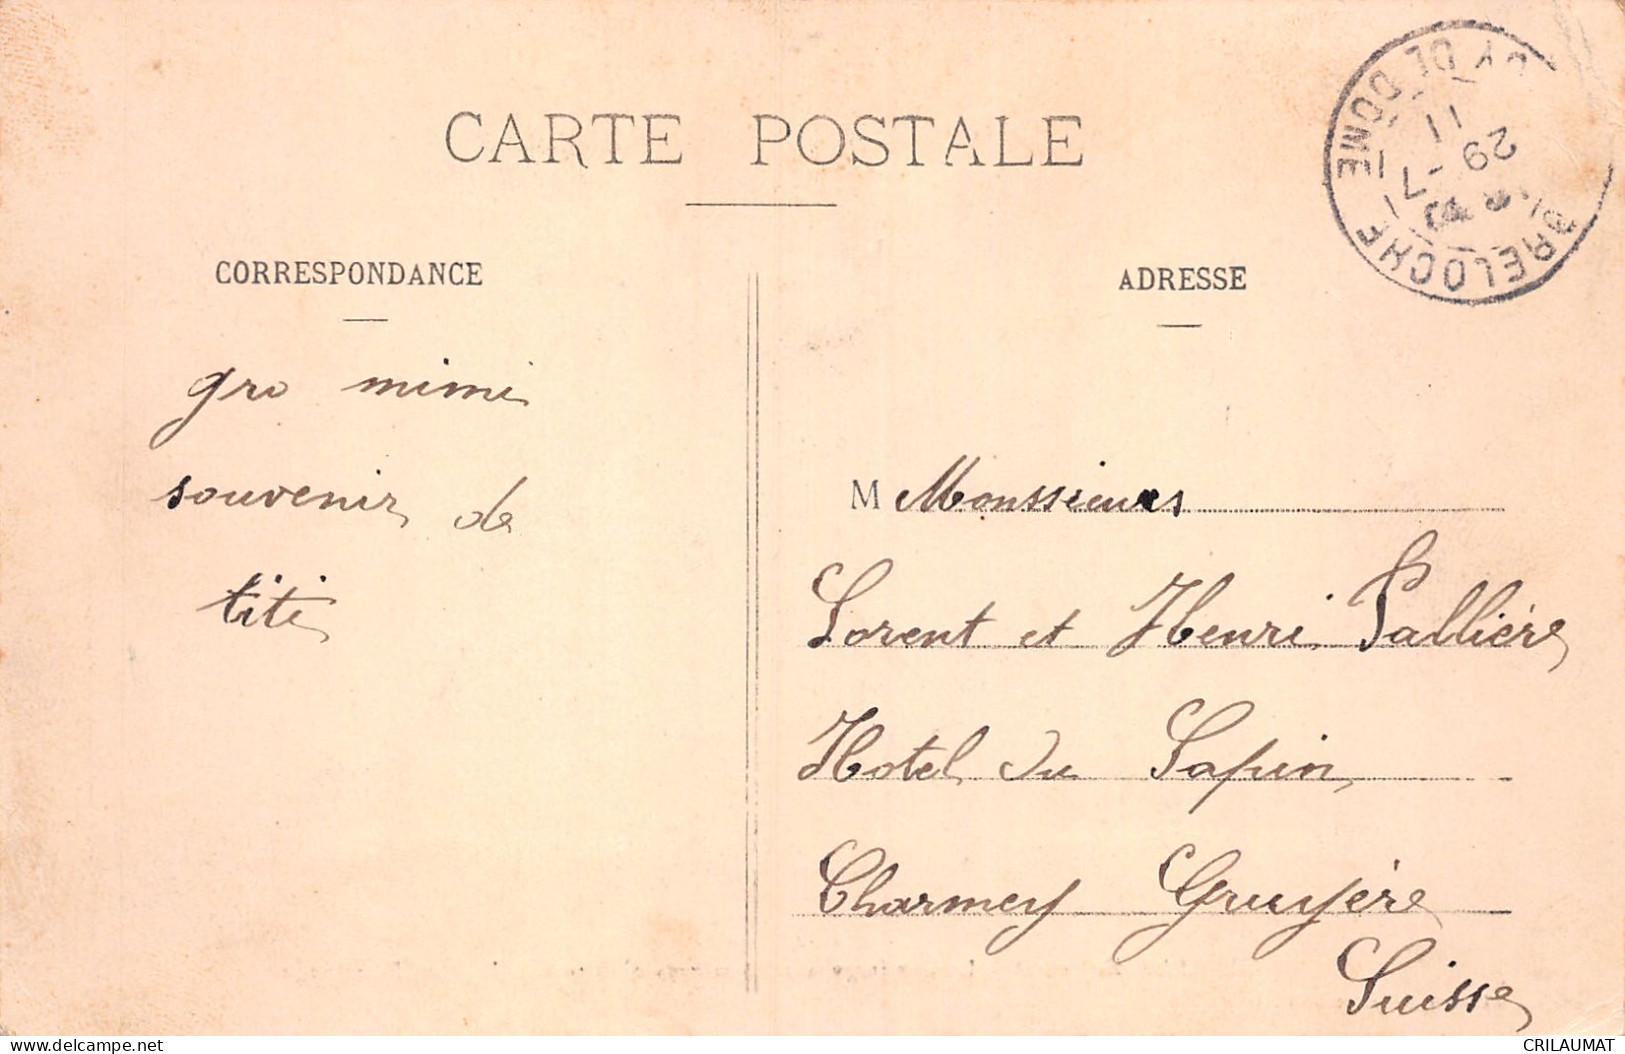 CARTE POSTALE
CORRESPONDANCE
ADRESSE
gro mimi
souvenir de
titi
M Monssieurs
Lorent et Henri Pallière
Hotel du Sapin
Charmey Gruyére
Suisse
PUY DE DOME
11
29 - 7
ARRELOCHE
delcampe.net
CRILAUMAT